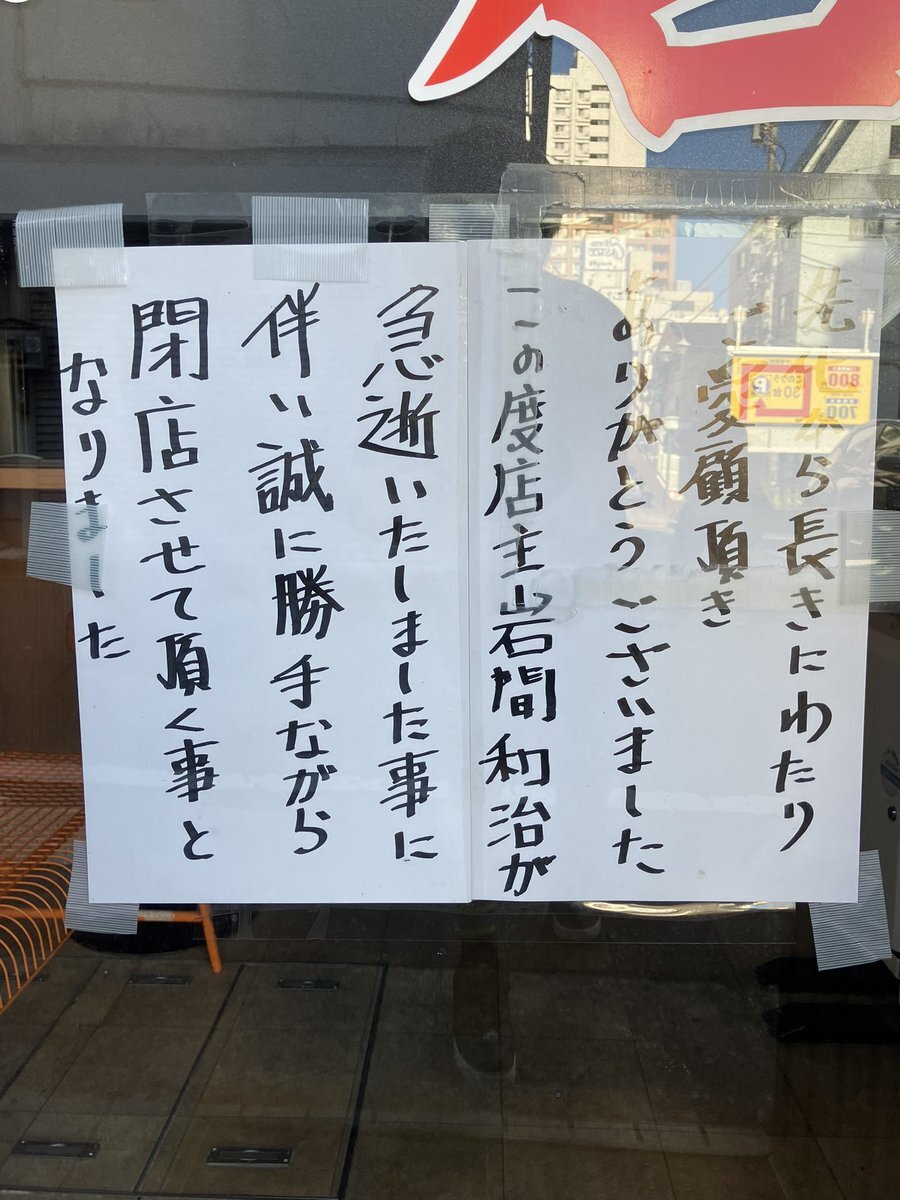 先代から長きにわたり
ご愛顧頂き
ありがとうございました
この度店主岩間和治が
急逝いたしました事に
伴い誠に勝手ながら
閉店させて頂く事と
なりました
800
700